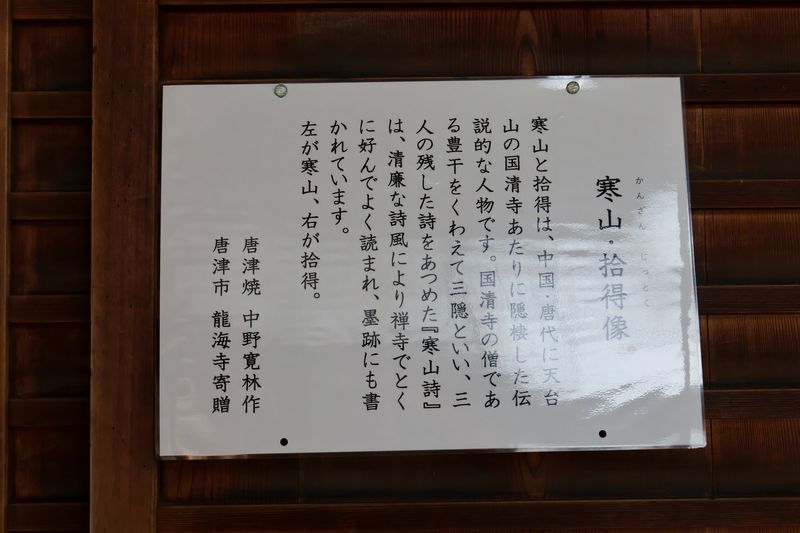 かんざん じっとく
寒山・拾得像
寒山と拾得は、中国・唐代に天台
山の国清寺あたりに隠棲した伝
説的な人物です。国清寺の僧であ
る豊干をくわえて三隠といい、三
人の残した詩をあつめた『寒山詩』
は、清廉な詩風により禅寺でとく
に好んでよく読まれ、墨跡にも書
かれています。
左が寒山、右が拾得。
唐津焼 中野寛林作
唐津市 龍海寺寄贈